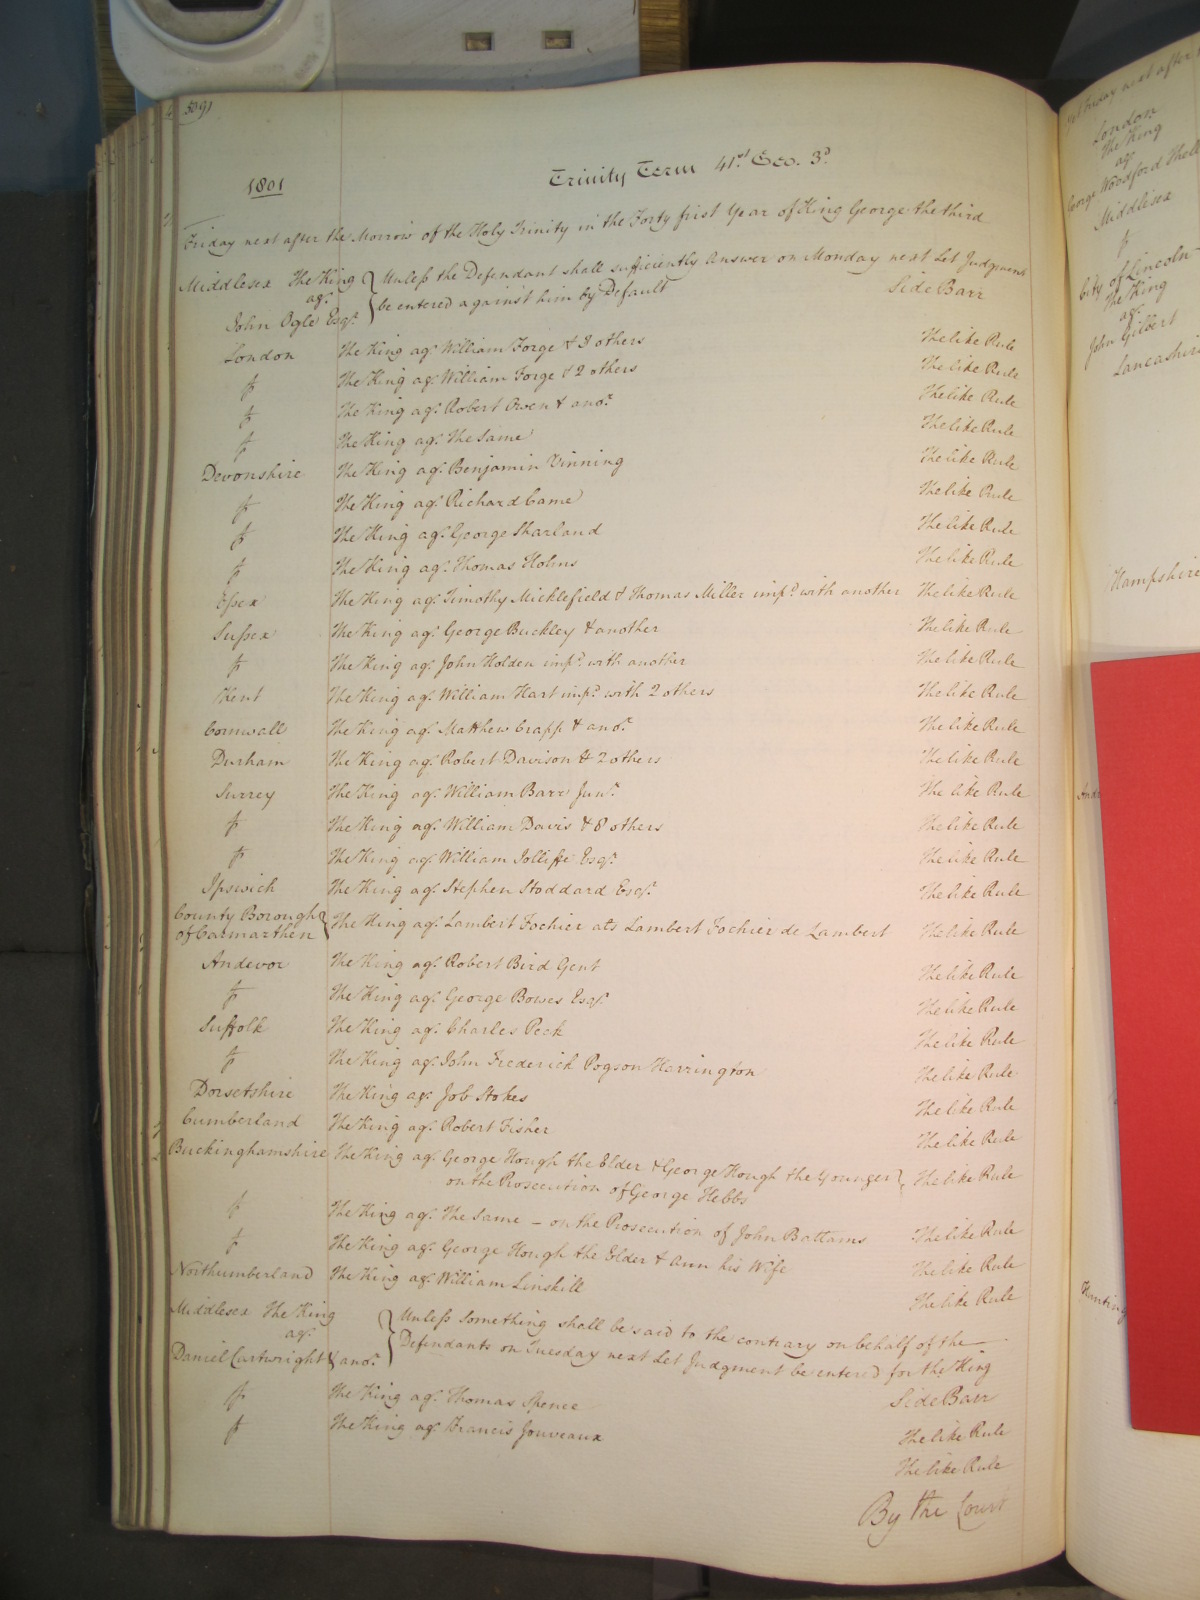 509)
1801
Trinity Term 41st Geo. 3d
Friday next after the Morrow of the Holy Trinity in the Forty first Year of King George the third
Middlesex The King agt. John Ogle Esqr. } Unless the Defendant shall sufficiently Answer on Monday next Let Judgment
be entered against him by Default Side Barr
London The King agt. William Forge & 3 others The like Rule
fs The King agt. William Forge & 2 others The like Rule
fs The King agt. Robert Owen & anor. The like Rule
fs The King agt. The Same The like Rule
Devonshire The King agt. Benjamin Vinning The like Rule
fs The King agt. Richard Came The like Rule
fs The King agt. George Sharland The like Rule
fs The King agt. Thomas Hohns The like Rule
Essex The King agt. Timothy Micklefield & Thomas Miller impd. with another The like Rule
Sussex The King agt. George Buckley & another The like Rule
fs The King agt. John Holden impd. with another The like Rule
Kent The King agt. William Hart impd. with 2 others The like Rule
Cornwall The King agt. Matthew Crapp & anor. The like Rule
Durham The King agt. Robert Davison & 2 others The like Rule
Surrey The King agt. William Barr Junr. The like Rule
fs The King agt. William Davis & 8 others The like Rule
fs The King agt. William Jolliffe Esqr. The like Rule
Ipswich The King agt. Stephen Stoddard Esqr. The like Rule
County Borough
of Carmarthen } The King agt. Lambert Fochier ats Lambert Fochier de Lambert The like Rule
Andevor The King agt. Robert Bird Gent The like Rule
fs The King agt. George Bowes Esqr. The like Rule
Suffolk The King agt. Charles Peck The like Rule
fs The King agt. John Frederick Pogson Herrington The like Rule
Dorsetshire The King agt. Job Stokes The like Rule
Cumberland The King agt. Robert Fisher The like Rule
Buckinghamshire The King agt. George Hough the Elder & George Hough the Younger } The like Rule
on the Prosecution of George Hebbs
fs The King agt. The Same – on the Prosecution of John Battams The like Rule
fs The King agt. George Hough the Elder & Ann his Wife The like Rule
Northumberland The King agt. William Linskill The like Rule
Middlesex The King
agt.
Daniel Cartwright & anor. } Unless Something shall be said to the contrary on behalf of the
Defendants on Tuesday next Let Judgment be entered for the King
Side Barr
fs The King agt. Thomas Spence The like Rule
fs The King agt. Francis Jouveaux The like Rule
By the Court
next after
London
The King
agt.
George Woodford
Middlesex
fs
City of Lincoln
The King
agt.
John Gilbert
Lancashire
Hampshire